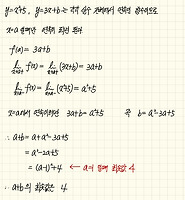 y=x²+5, y=3x+b는 각각 실수 전체에서 연속인 함수이므로
x=a 일때만 연속이 되면 된다
f(a) = 3a+b
lim f(x) = lim (3x+b) = 3a+b
lim f(x) = lim (x²+5) = a²+5
x=a에서 연속이려면 3a+b = a²+5 즉 b = a²-3a+5
∴ a+b = a+a²-3a+5
= a²-2a+5
= (a-1)²+4 ← a=1 일때 최솟값 4
∴ a+b의 최솟값은 4